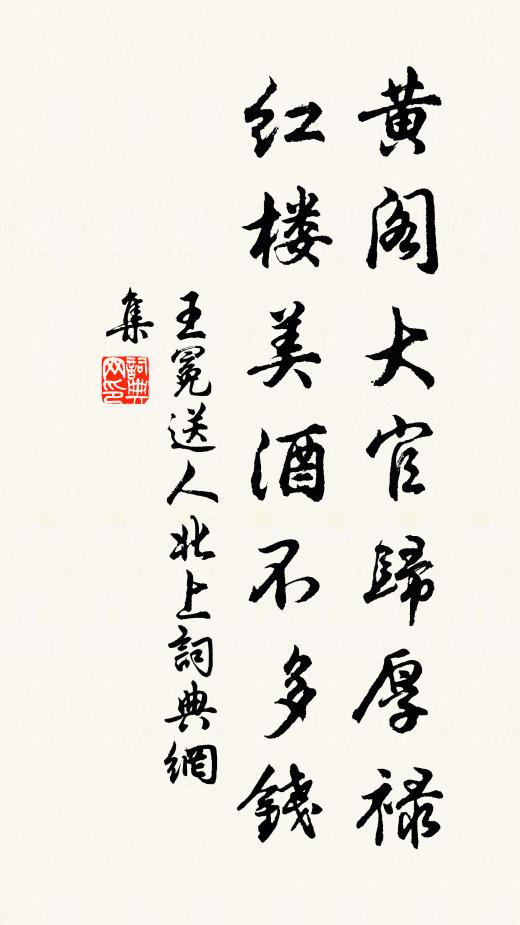 黄阁大官歸厚禄
红楼美酒不多錢
王冕送人北上詞典網
集
詞典
网印